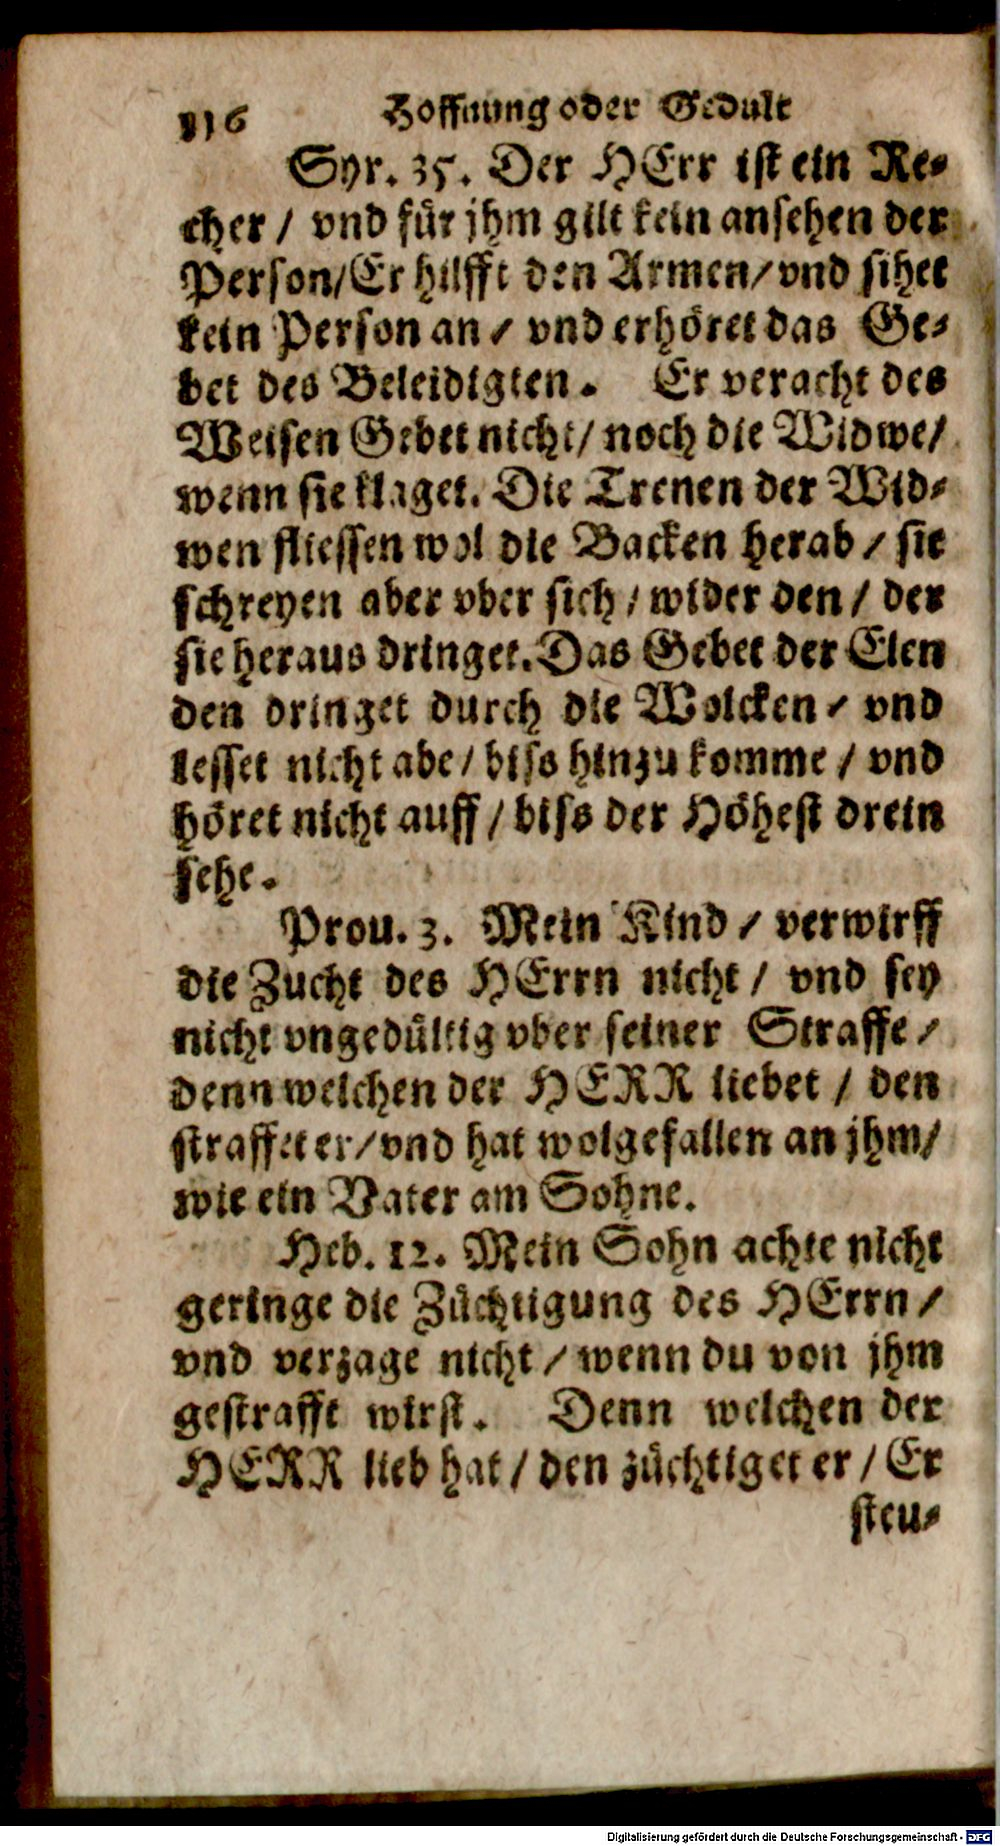 816 Hoffnung oder Gedult
Syr. 35. Der HErr ist ein Re-
cher / vnd für jhm gilt kein ansehen der
Person/Er hilfft den Armen/vnd sihet
kein Person an / vnd erhöret das Ge-
bet des Beleidigten. Er veracht des
Weisen Gebet nicht/ noch die Widwe/
wenn sie klaget. Die Trenen der Wid-
wen fliessen wol die Backen herab / sie
schreyen aber vber sich / wider den / der
sie heraus dringet. Das Gebet der Elen
den dringet durch die Wolcken / vnd
lesset nicht abe / biss hinzu komme / vnd
höret nicht auff / biss der Höhest drein
sehe.
Prou. 3. Mein Kind / verwirff
die Zucht des HErrn nicht / vnd sey
nicht vngedültig vber seiner Straffe /
denn welchen der HERR liebet / den
straffet er/vnd hat wolgefallen an jhm/
wie ein Vater am Sohne.
Heb. 12. Mein Sohn achte nicht
geringe die Züchtigung des HErrn /
vnd verzage nicht / wenn du von jhm
gestrafft wirst. Denn welchen der
HERR lieb hat / den züchtiget er / Er
steu-
Digitalisierung gefördert durch die Deutsche Forschungsgemeinschaft - DFG